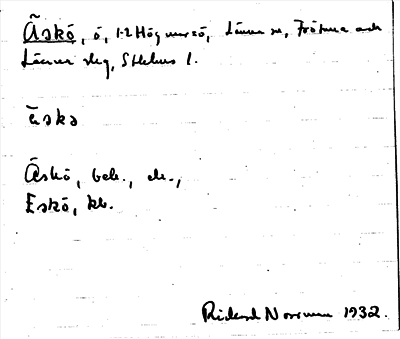 Äskö, ö, 1-2 Högmarsö, Länna sn, Frötuna och
Länna slg, Sthlms l.
äskə
Äskö, bek., ek.,
Eskö, kb.
Rickard Norrman 1932.